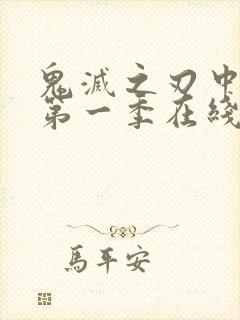 鬼滅之刃中
第一季在綫
馬平安